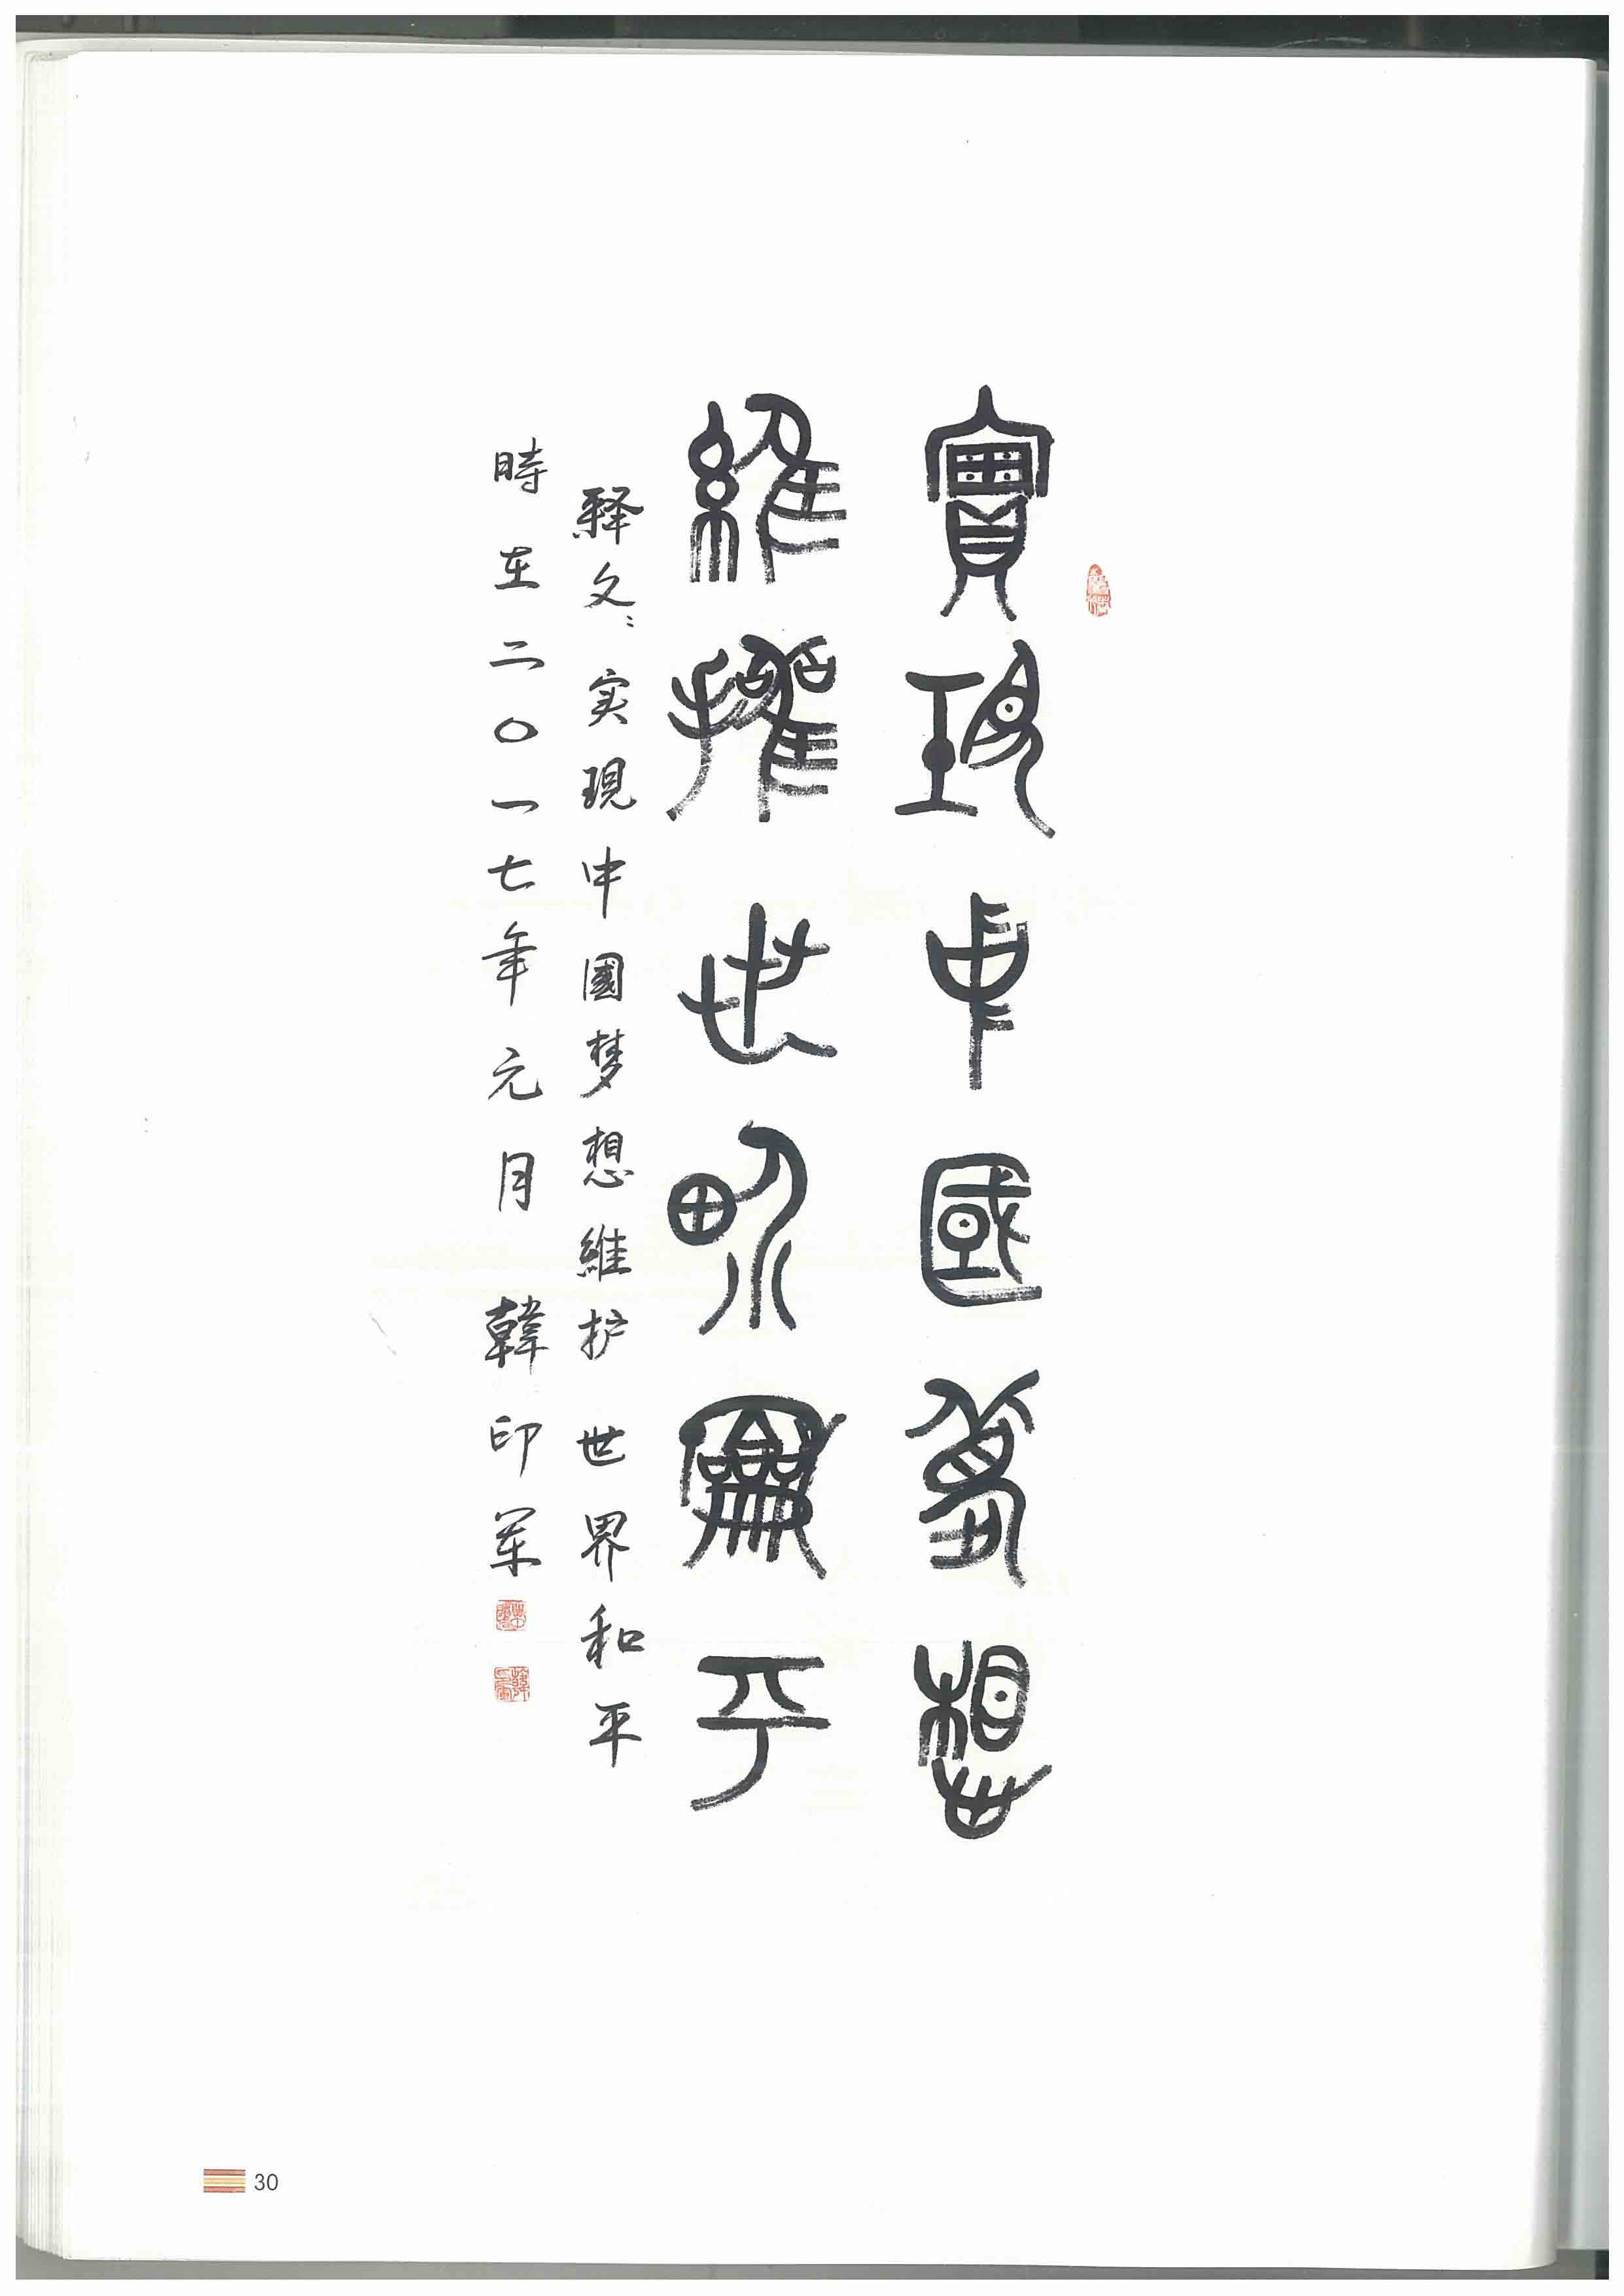 實現中國夢想
維護世界龢平
释文：实現中國梦想維护世界和平
時在二〇一七年元月韓印军
30